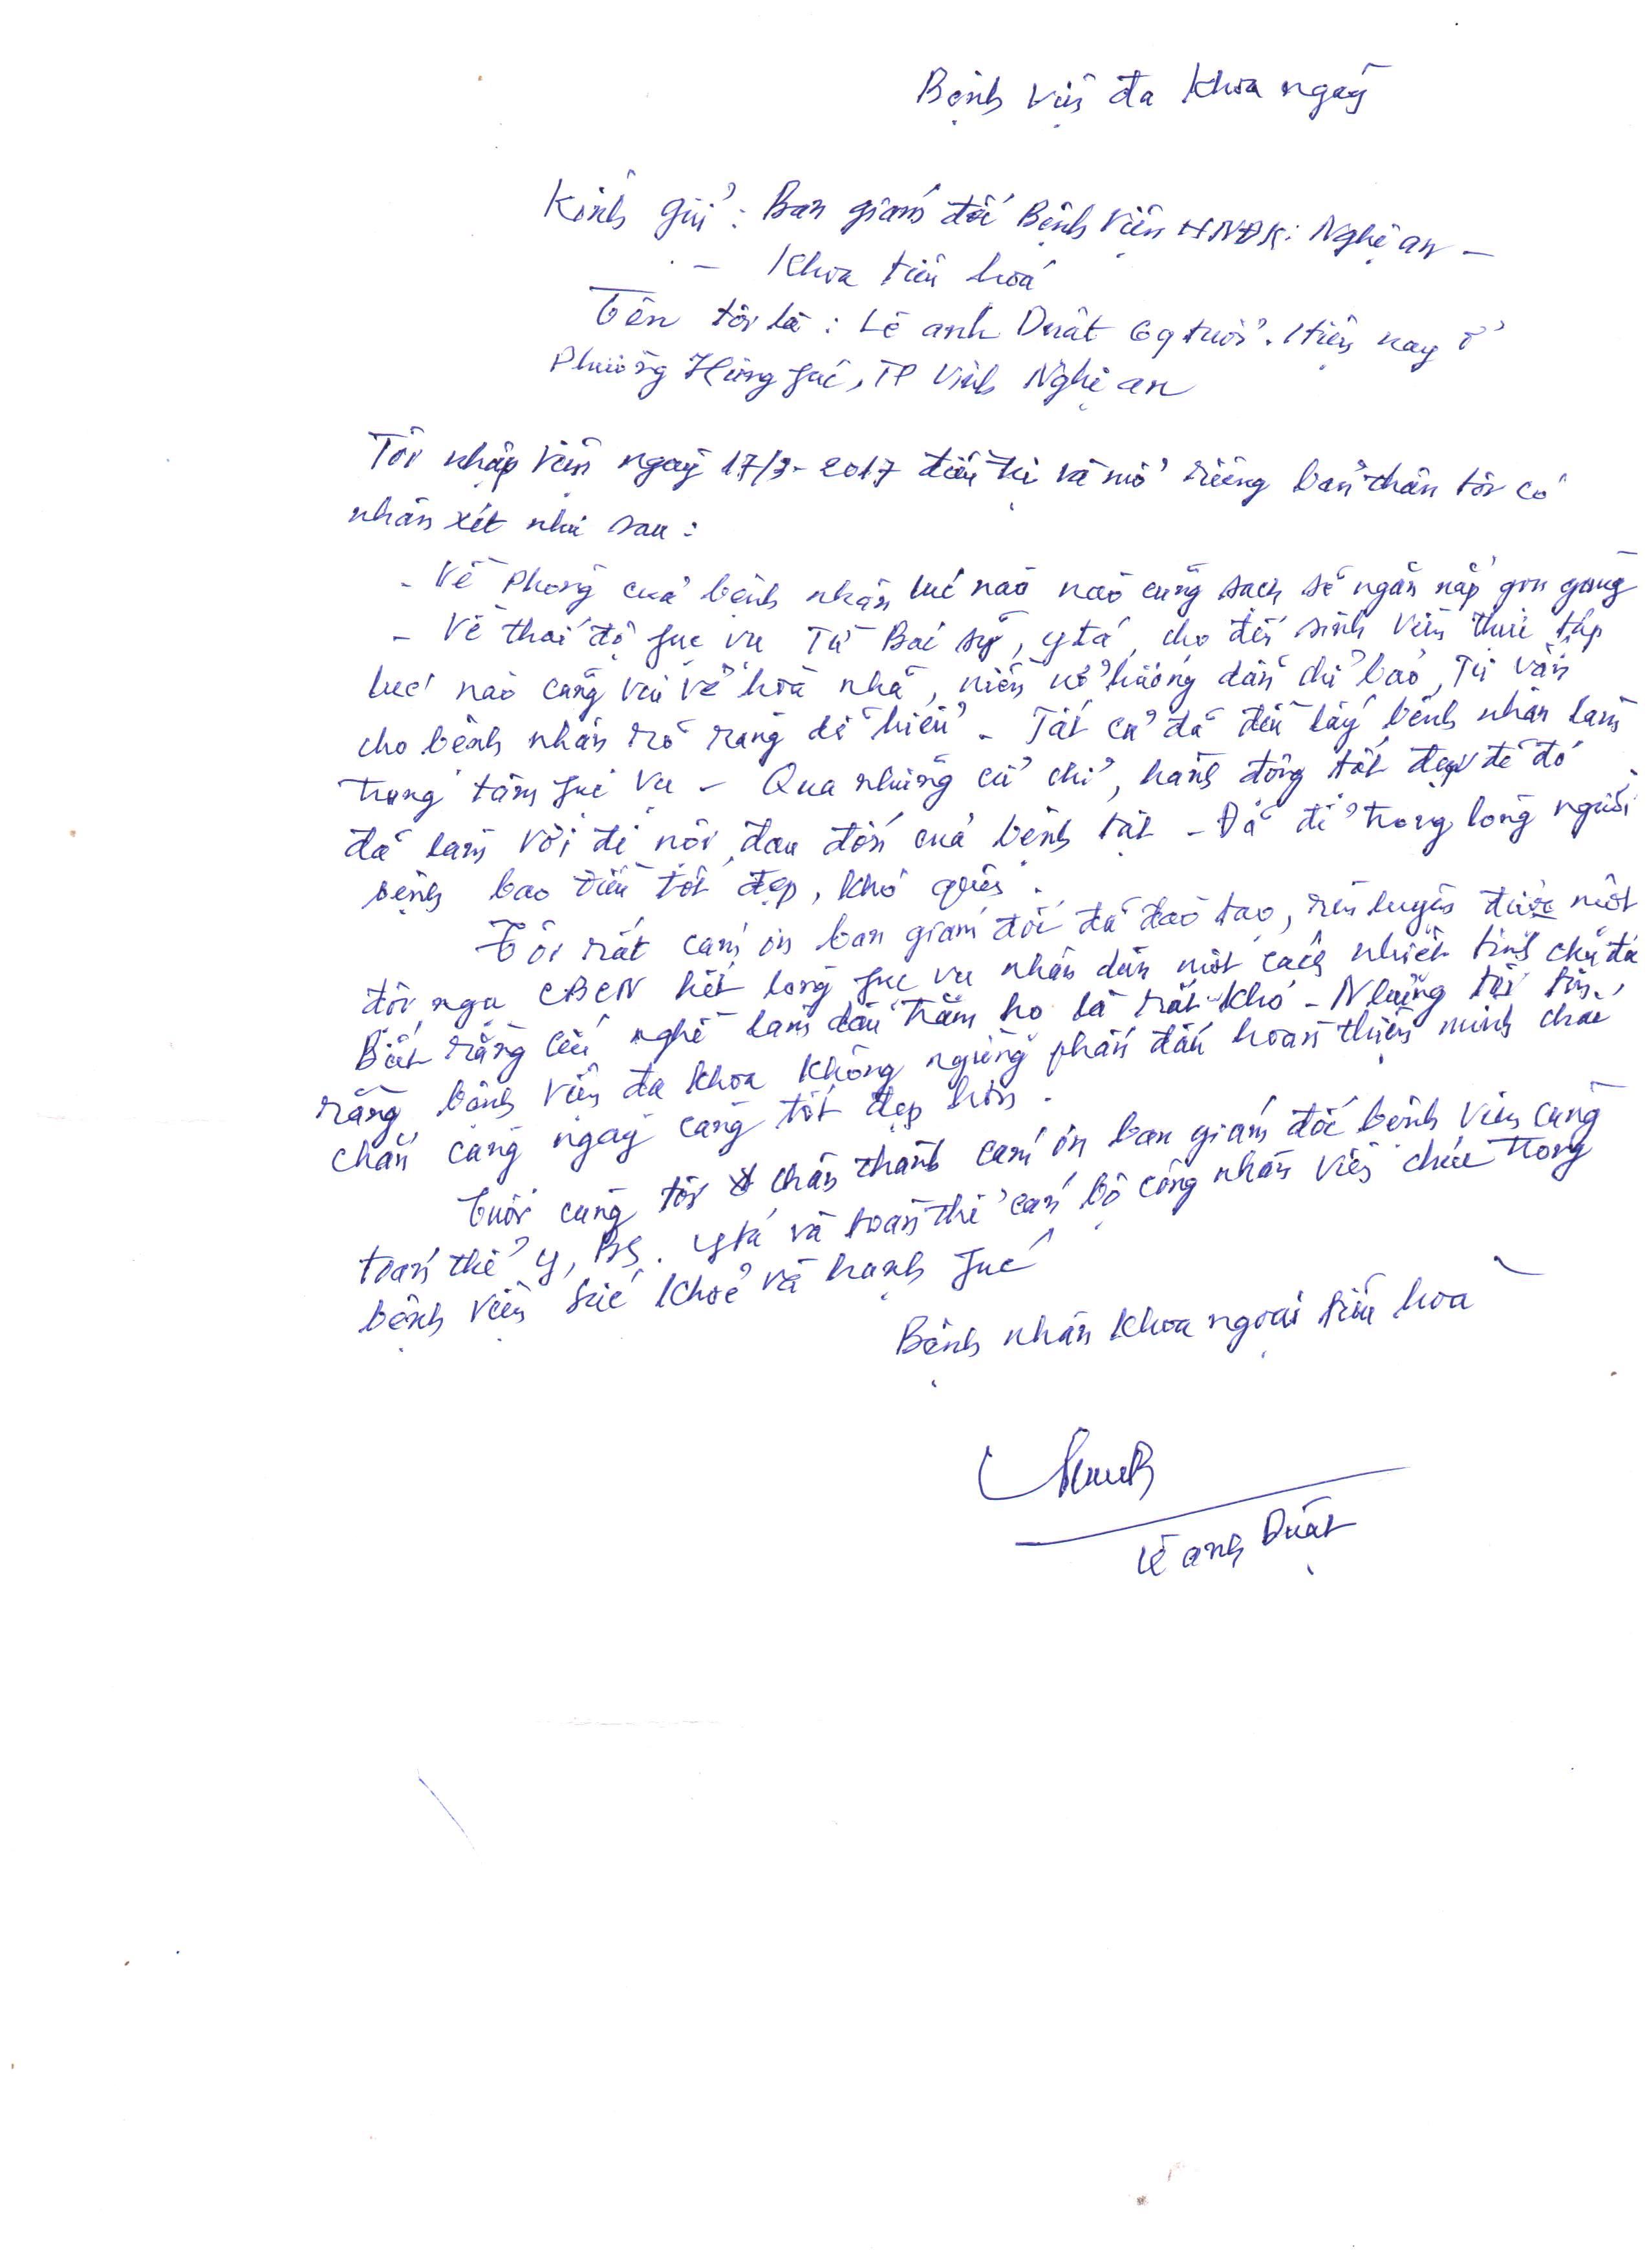 Bệnh viện đa khoa ngày
Kính gửi: Ban giám đốc Bệnh viện HNĐK: Nghệ an -
- Khoa tiêu hoá
Tên tôi là: Lê anh Duật 69 tuổi. Hiện nay ở
Phường Hưng fúc, TP Vinh Nghệ an
Tôi nhập viện ngày 17/3-2017 điều trị và mổ riêng bản thân tôi có
nhận xét như sau:
- Về phòng của bệnh nhân lúc nào nào cũng sạch sẽ ngăn nắp gọn gàng
- Về thái độ fục vụ Từ Bác sỹ, y tá, cho đến sinh viên thực tập
lúc nào cũng vui vẻ hoà nhã, niềm nở hướng dẫn chỉ bảo, Tư vấn
cho bệnh nhân rõ ràng dễ hiểu - Tất cả đã đều lấy bệnh nhân làm
trung tâm fục vụ - Qua những cử chỉ, hành động tốt đẹp đẽ đó
đã làm vơi đi nỗi đau đớn của bệnh tật - Đã để trong lòng người
bệnh bao điều tốt đẹp, khó quên.
Tôi rất cám ơn ban giám đốc đã đào tạo, rèn luyện được một
đội ngũ CBCN hết lòng fục vụ nhân dân một cách nhiệt tình chu đáo
Biết rằng cái nghề làm dâu trăm họ là rất khó - Nhưng tôi tin
rằng bệnh viện đa khoa không ngừng phấn đấu hoàn thiện mình chắc
chắn càng ngày càng tốt đẹp hơn.
Cuối cùng tôi chân thành cám ơn ban giám đốc bệnh viện cùng
toàn thể y, BS. y tá và toàn thể cán bộ công nhân viên chức trong
bệnh viện sức khoẻ và hạnh fúc
Bệnh nhân khoa ngoại tiêu hoá
Lê anh Duật